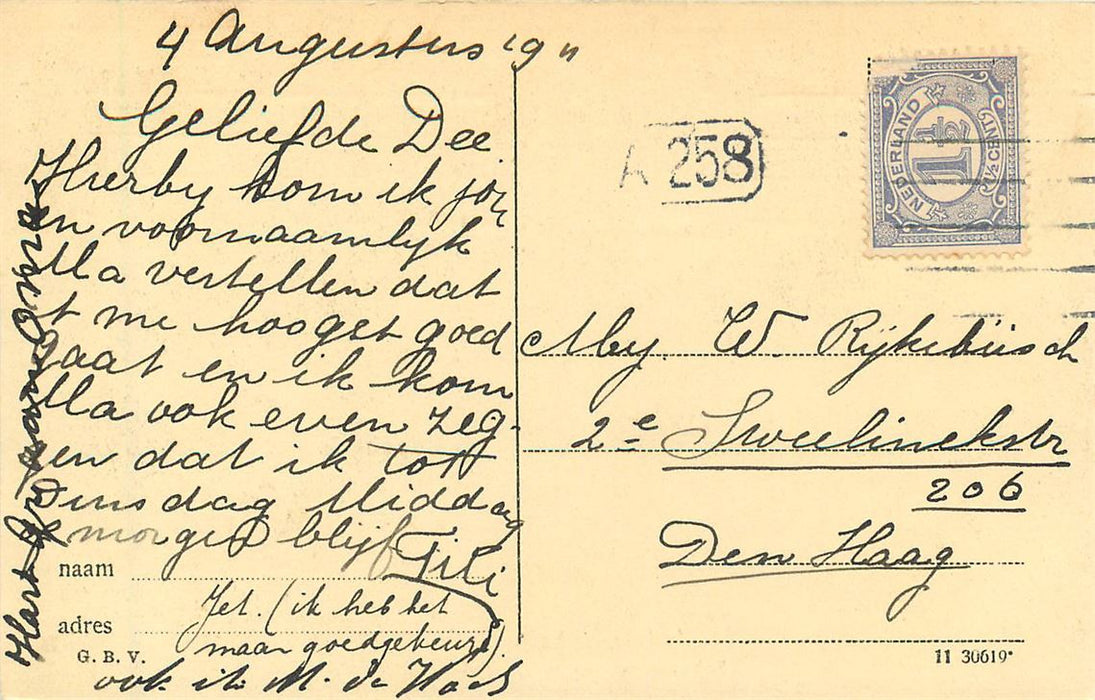 4 Augustus '911
Geliefde Dee
Hierby kom ik jou
en voornaamlyk
Ma vertellen dat
't me hoogst goed
gaat en ik kom
Ma ook even zeg-
gen dat ik tot
Dinsdag Middag
morgen blijf
Titi
naam
Jet. (ik heb het
adres
maar goedgekeurd).
G. B. V.
ook it: M. de
Hart
A 258
NEDERLAND
1½
1½ CENT
W. Rijkebüsch
2e Sweelinckstr
206
Den Haag
11 30619*